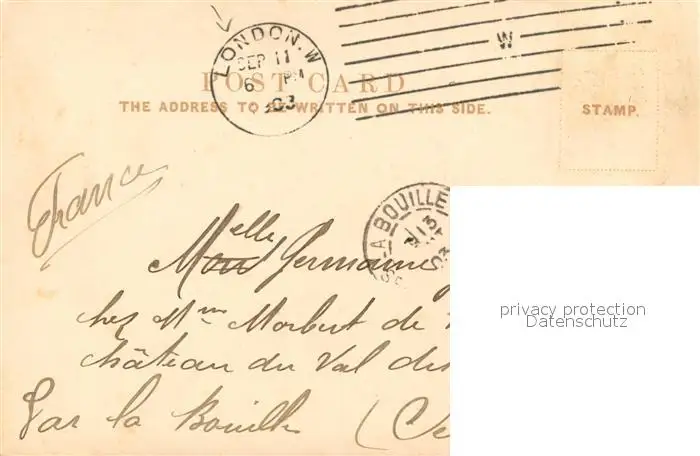 LONDON. W
SEP 11
6 PM
03
W
POST CARD
THE ADDRESS TO BE WRITTEN ON THIS SIDE.
STAMP.
France
LA BOUILLE
13
03
Melle Germaine
chez Mme Morbert de
château du Val des
Par la Bouille (Se
privacy protection
Datenschutz